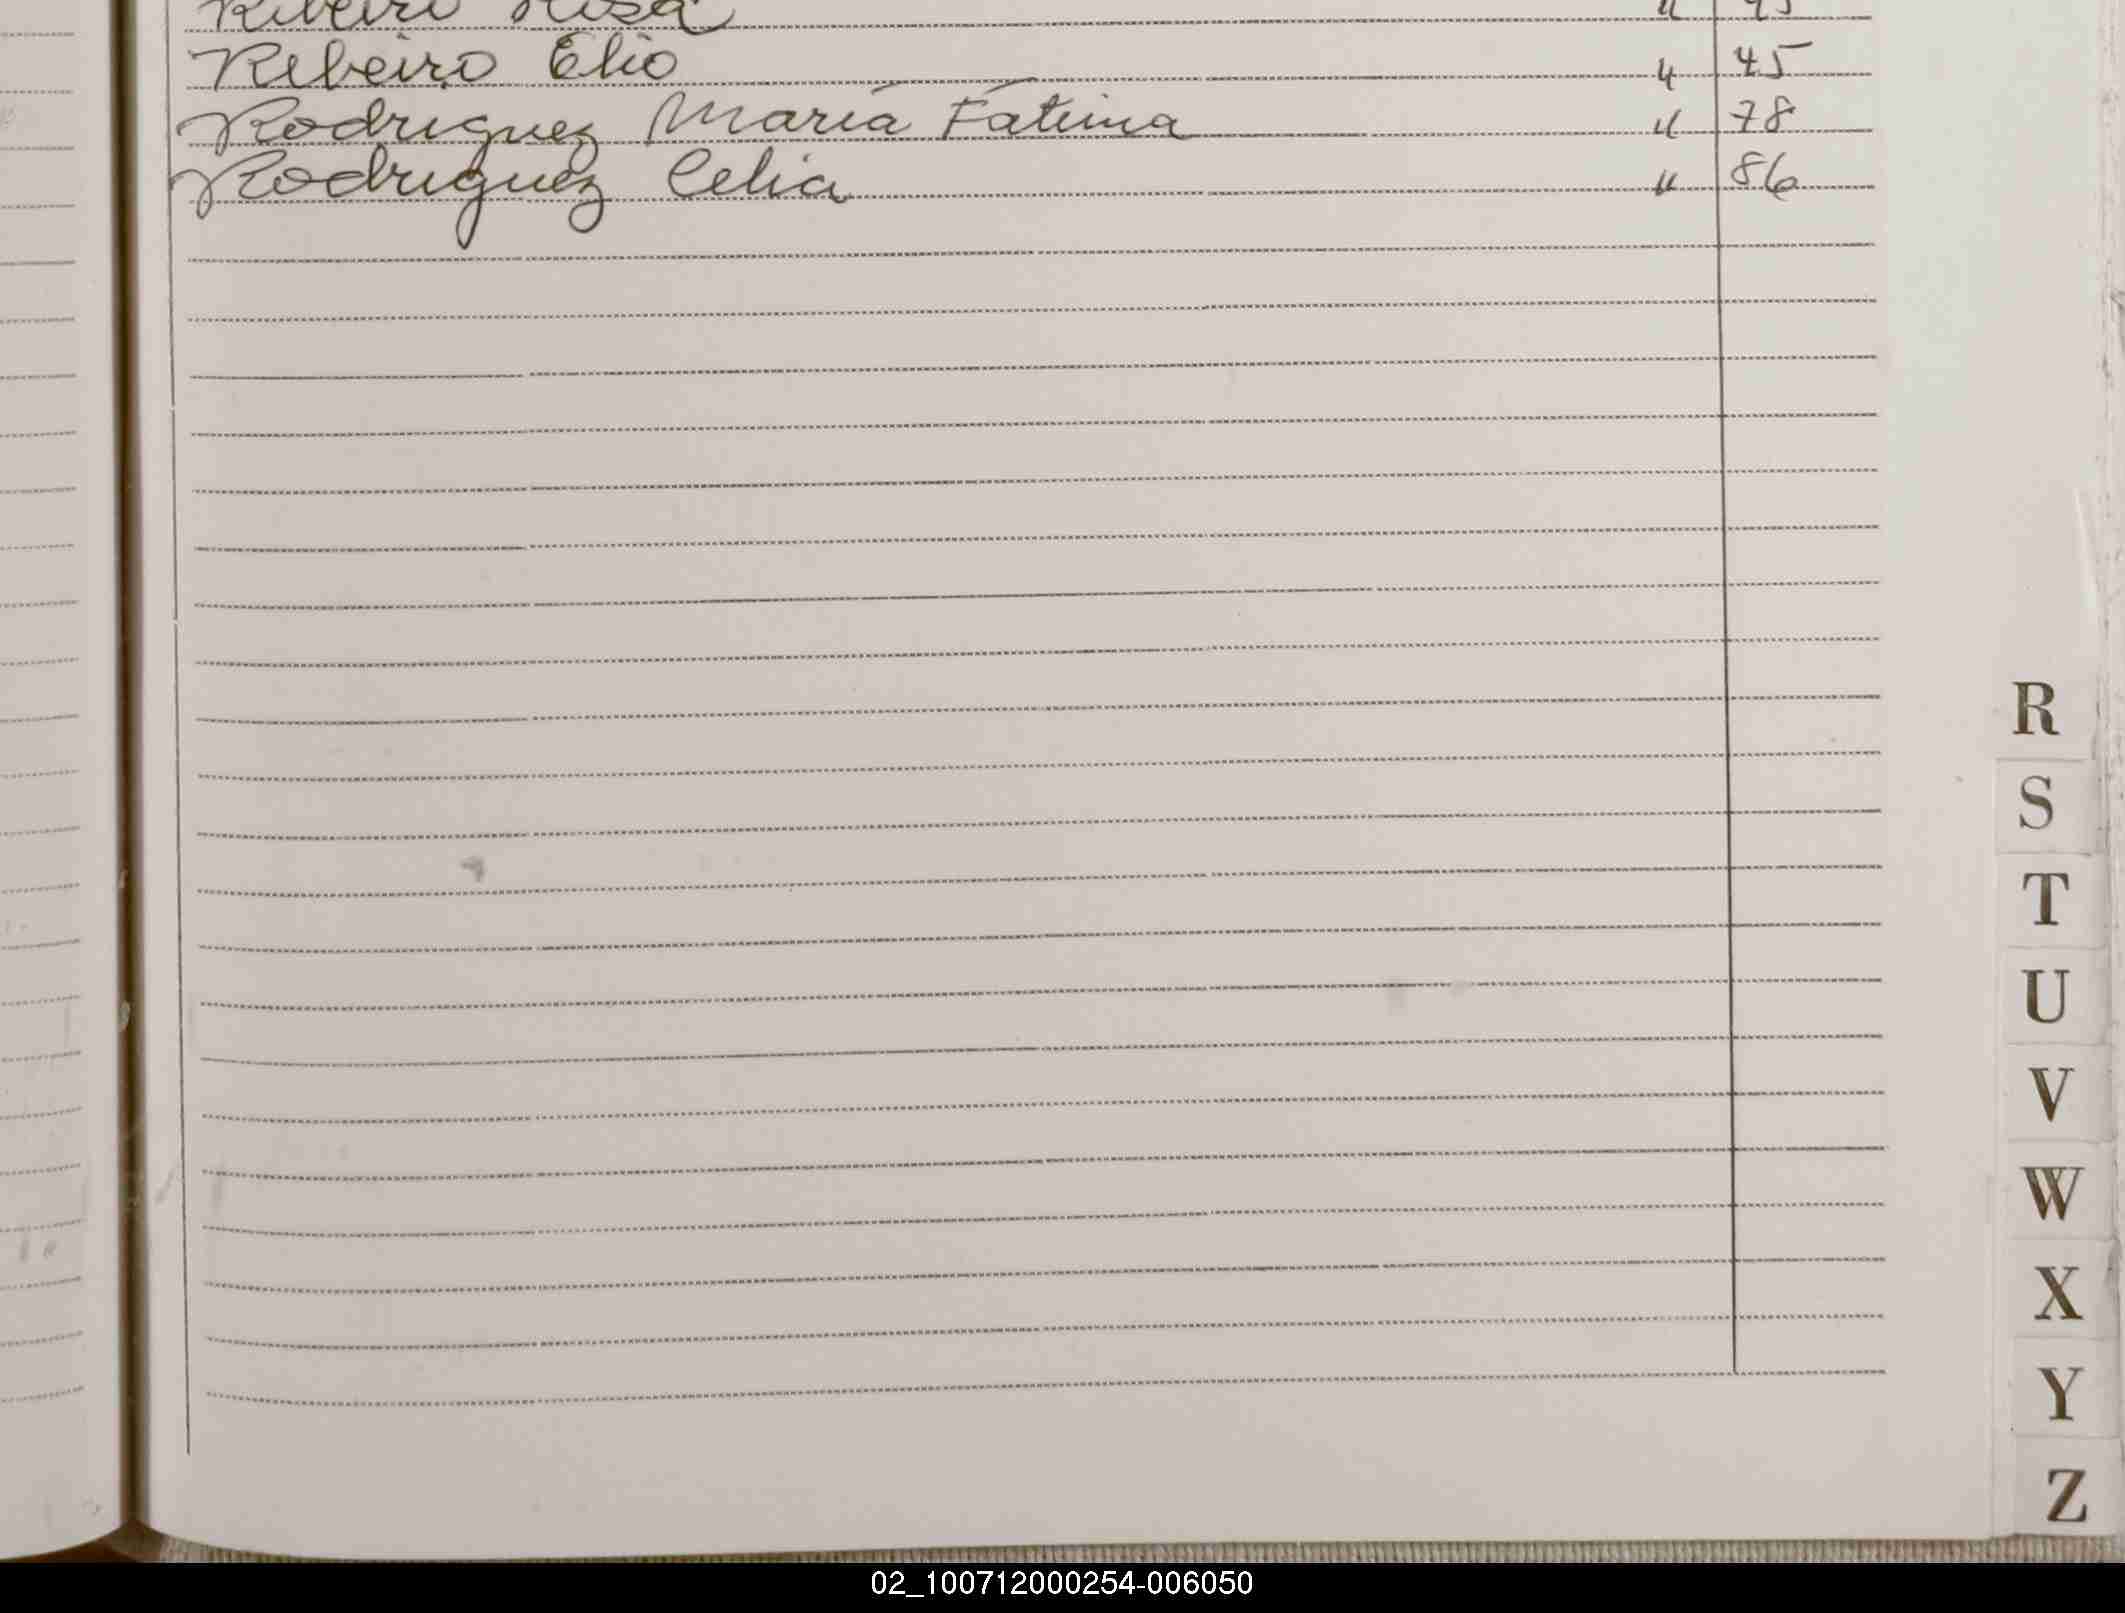 Ribeiro Elio " 45
Rodriguez Maria Fatima " 78
Rodriguez Celia " 86
R
S
T
U
V
W
X
Y
Z
02_100712000254-006050